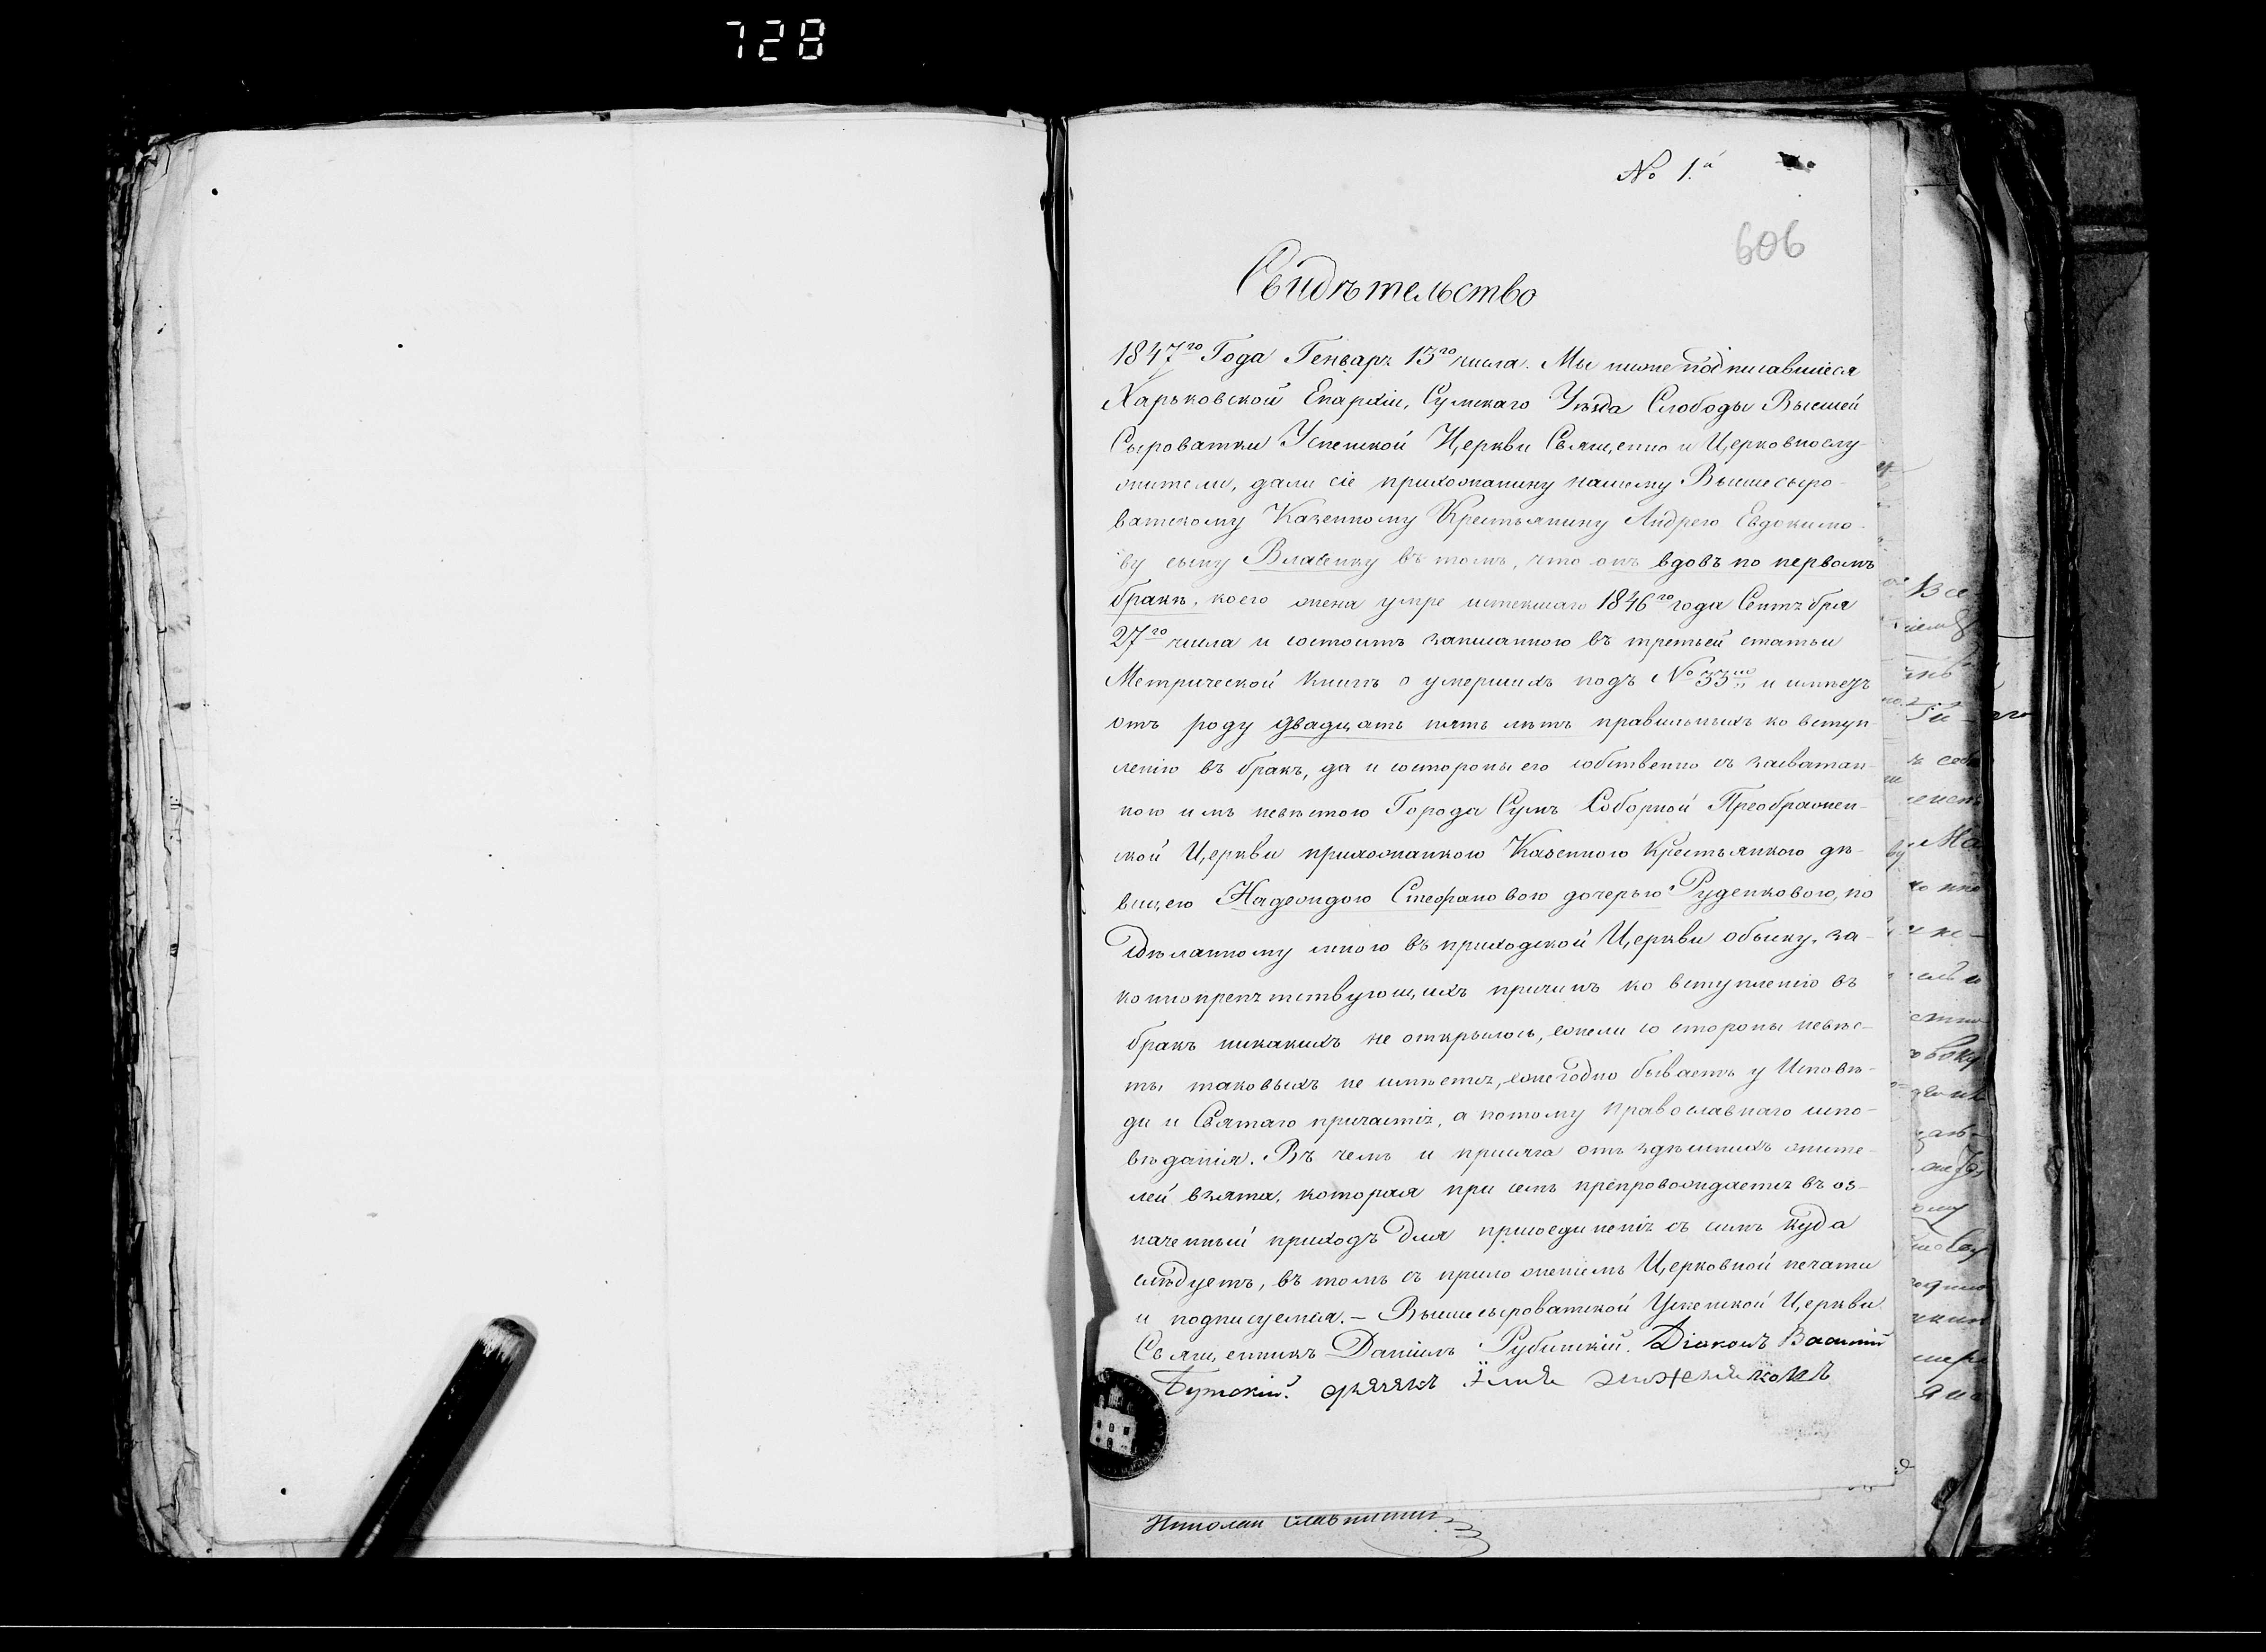 728
№ 1.й
606
Свидѣтельство
1847го Года Генваря 13го числа. Мы ниже подписавшіеся
Харьковской Епархіи, Сумскаго Уѣзда Слободы Высшей
Сыроватки Успенской Церкви Священно и Церковнослу-
жители, дали сіе прихожанину нашему Вышесыро-
ватскому Казенному Крестьянину Андрею Евдокимо-
ву сыну Власенку въ томъ, что онъ вдовъ по первомъ
бракѣ, коего жена умре истекшаго 1846го года Сентября
27го числа и состоитъ записанною въ третьей статьи
Метрической Книгѣ о умершихъ подъ № 33 и имѣетъ
отъ роду двадцать пять лѣтъ правильныхъ ко вступ-
ленію въ бракъ, да и состороны его собственно съ засватан-
ною имъ невѣстою Города Сумъ Соборной Преображен-
ской Церкви прихожанкою Казенною Крестьянкою дѣ-
вицею Надеждою Стефановою дочерью Руденковою, по
сдѣланному мною въ приходской Церкви обыску, за-
коннопрепятствующихъ причинъ ко вступленію въ
бракъ никакихъ не открылось, ежели со стороны невѣс-
ты таковыхъ не имѣется, ежегодно бываетъ у Исповѣ-
ди и Святаго причастія, а потому православнаго испо-
вѣданія. Въ чемъ и присяга отъ здѣшнихъ жите-
лей взята, которая при семъ препровождается въ оз-
наченный приходъ для присоединенія съ симъ куда
слѣдуетъ, въ томъ съ приложеніемъ Церковной печати
и подписуемся. – Вышесыроватской Успенской Церкви
Священникъ Даніилъ Рубинскій. Діаконъ Василій
Бутскій.
Николай